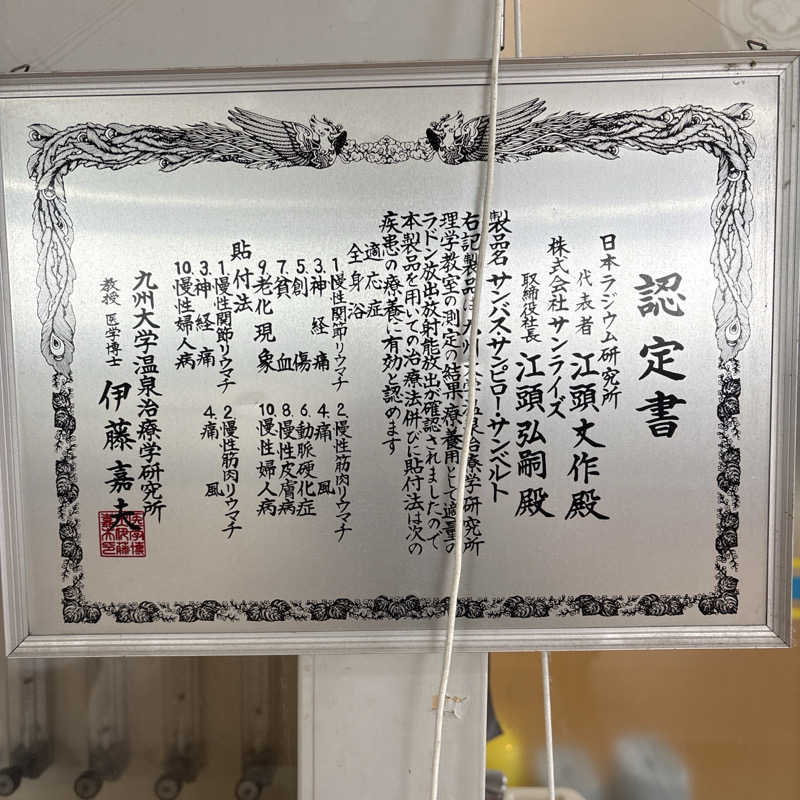 認定書
日本ラジウム研究所
代表者 江頭丈作殿
株式会社サンライズ
取締役社長 江頭弘嗣殿
製品名 サンバス・サンピロー・サンベルト
右記製品は九州大学温泉治療学研究所
理学教室の測定の結果、療養用として適量の
ラドン放出放射能放出が確認されましたので
本製品を用いての治療法併びに貼付法は次の
疾患の療養に有効と認めます
適応症
全身浴
1.慢性関節リウマチ 2.慢性筋肉リウマチ
3.神経痛 4.痛風
5.創傷 6.動脈硬化症
7.貧血 8.慢性皮膚病
9.老化現象 10.慢性婦人病
貼付法
1.慢性関節リウマチ 2.慢性筋肉リウマチ
3.神経痛 4.痛風
10.慢性婦人病
九州大学温泉治療学研究所
教授 医学博士 伊藤嘉夫